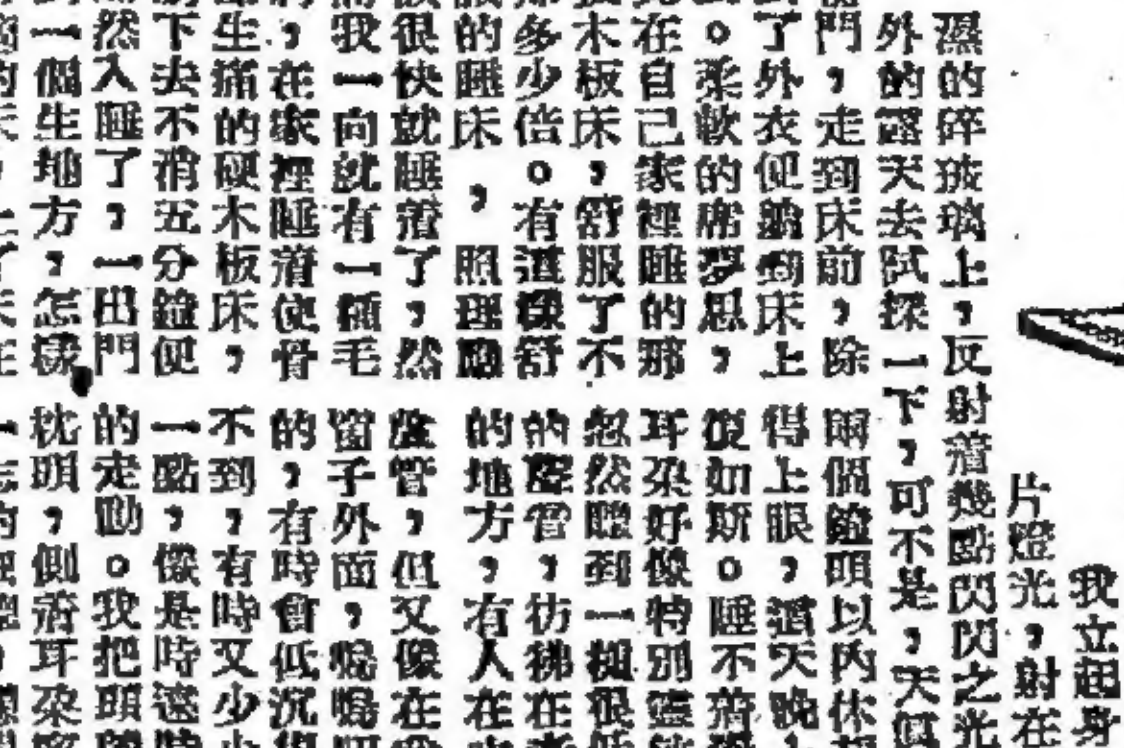 我立起身
片燈光,射在
濕的碎玻璃上,反射着幾點閃閃之光
外的露天去試探一下,可不是,天
門,走到床前,除
了外衣便躺到床上
。柔軟的席夢思,
在自己家裡睡的那
木板床,舒服了不
多少倍。有這樣舒
的睡床,照理應
很快就睡着了,然
我一向就有一種毛
,在家裡睡着使骨
生痛的硬木板床,
下去不消五分鐘便
然入睡了,一出門
一個生地方,怎樣
兩個鐘頭以內休
得上眼,天晚
復如斯。睡不着
耳朵好像特別靈
忽然聽到一種很
的聲音,彷彿在
的地方,有人在
,但又像在
窗子外面,嗚嗚
的,有時會低沉
不到,有時又少
一點,像是時遠時
的走動。我把頭
枕頭,側着耳朵